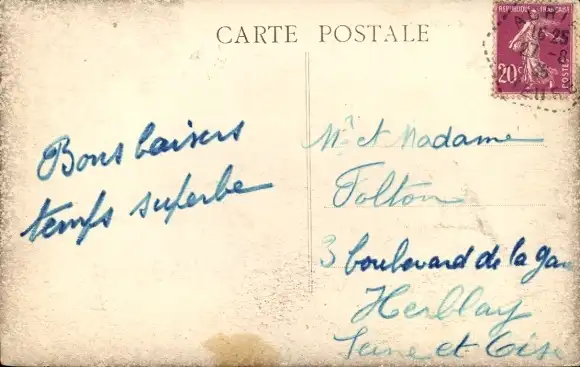 CARTE POSTALE
RÉPUBLIQUE FRANÇAISE
20c
POSTES
16-25
27-8
35
Bons baisers
temps superbe
Mr et Madame
Folton
3 boulevard de la Gare
Herblay
Seine et Oise